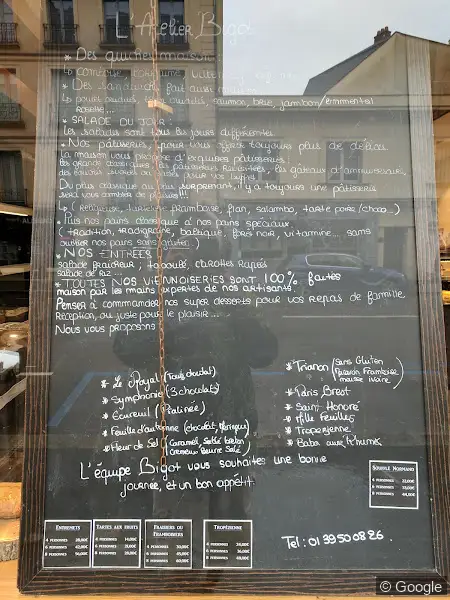 L'Atelier Bigot
* Des quiches maison
* Des sandwichs fait aussi maison
saumon, brie, jambon/emmental
rosette...
* SALADE DU JOUR :
les salades sont tous les jours différentes
* Nos pâtisseries : pour vous offrir toujours plus de délices
la maison vous propose d'exquises pâtisseries :
les grands classiques, les pâtisseries revisitées, les gâteaux d'anniversaire,
Du plus classique au plus surprenant, il y a toujours une pâtisserie
qui vous comblera de plaisir !!!
↳ (Religieuse, tartelette framboise, flan, salambo, tarte poire/choco...)
* Plus nos pains classique à nos pains spéciaux
(tradition, tradigraine, baltique, forêt noir, vitamine.... sans
oublier nos pains sans gluten)
* NOS ENTRÉES
salade fraîcheur, taboulé, carottes rapées
salade de riz...
* TOUTES NOS VIENNOISERIES SONT 100% faites
maison par les mains expertes de nos artisants.
Penser à commander nos super desserts pour vos repas de famille
réception, ou juste pour le plaisir...
Nous vous proposons
* Le Royal (Trois chocolat)
* Symphonie (3 chocolats)
* Ecureuil (Pralinée)
* Feuille d'automne (chocolat, meringue)
* Fleur de Sel (Caramel Salé breton
Crémeux Beurre Salé)
* Trianon (Sans Gluten
Macaron Framboise
mousse ivoire)
* Paris Brest
* Saint Honoré
* Mille Feuilles
* Tropézienne
* Baba aux Rhums
L'équipe Bigot vous souhaites une bonne
journée, et un bon appétit.
SOUFFLÉ NORMAND
4 PERSONNES 22,00€
6 PERSONNES 33,00€
8 PERSONNES 44,00€
ENTREMETS
4 PERSONNES 28,00€
6 PERSONNES 42,00€
8 PERSONNES 56,00€
TARTES AUX FRUITS
4 PERSONNES
6 PERSONNES
8 PERSONNES
FRAISIERS OU
FRAMBOISIERS
4 PERSONNES 30,00€
6 PERSONNES 45,00€
8 PERSONNES 60,00€
TROPÉZIENNE
4 PERSONNES
6 PERSONNES
8 PERSONNES
Tel : 01 39 50 08 26.
© Google